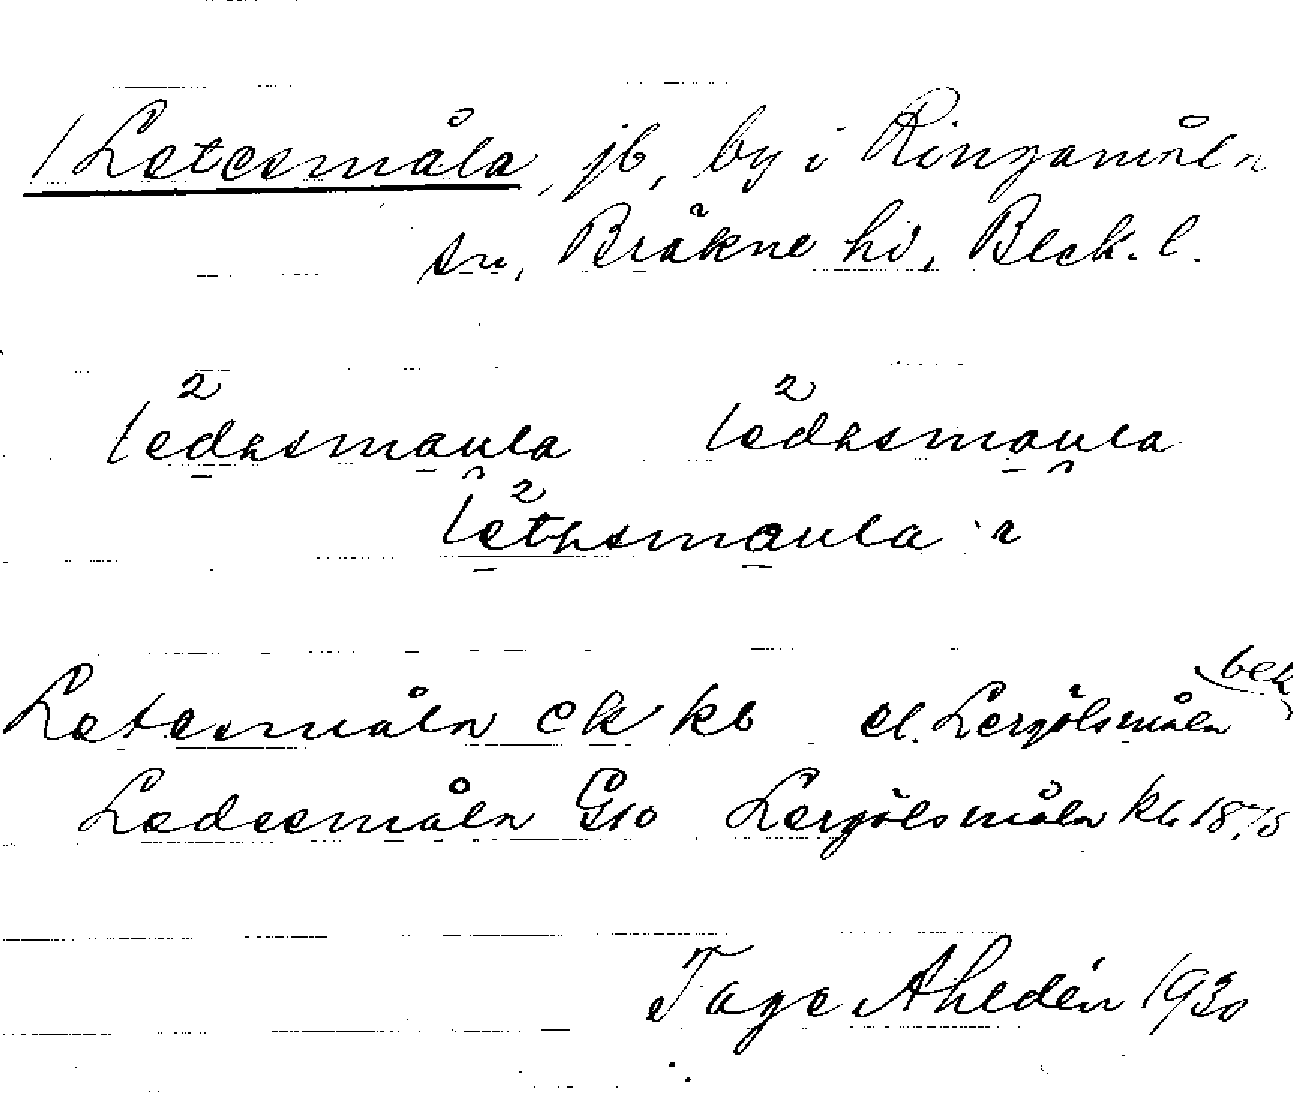 Letesmåla, jb, by i Ringamåla
sn, Bräkne hd, Blek. l.
ledəsmaula ledəsmaula
letəsmaula
Letesmåln ek kb el. Lergölsmåln bek
Ledesmåln G10 Lergölsmåln kb
Tage Ahldén 1930